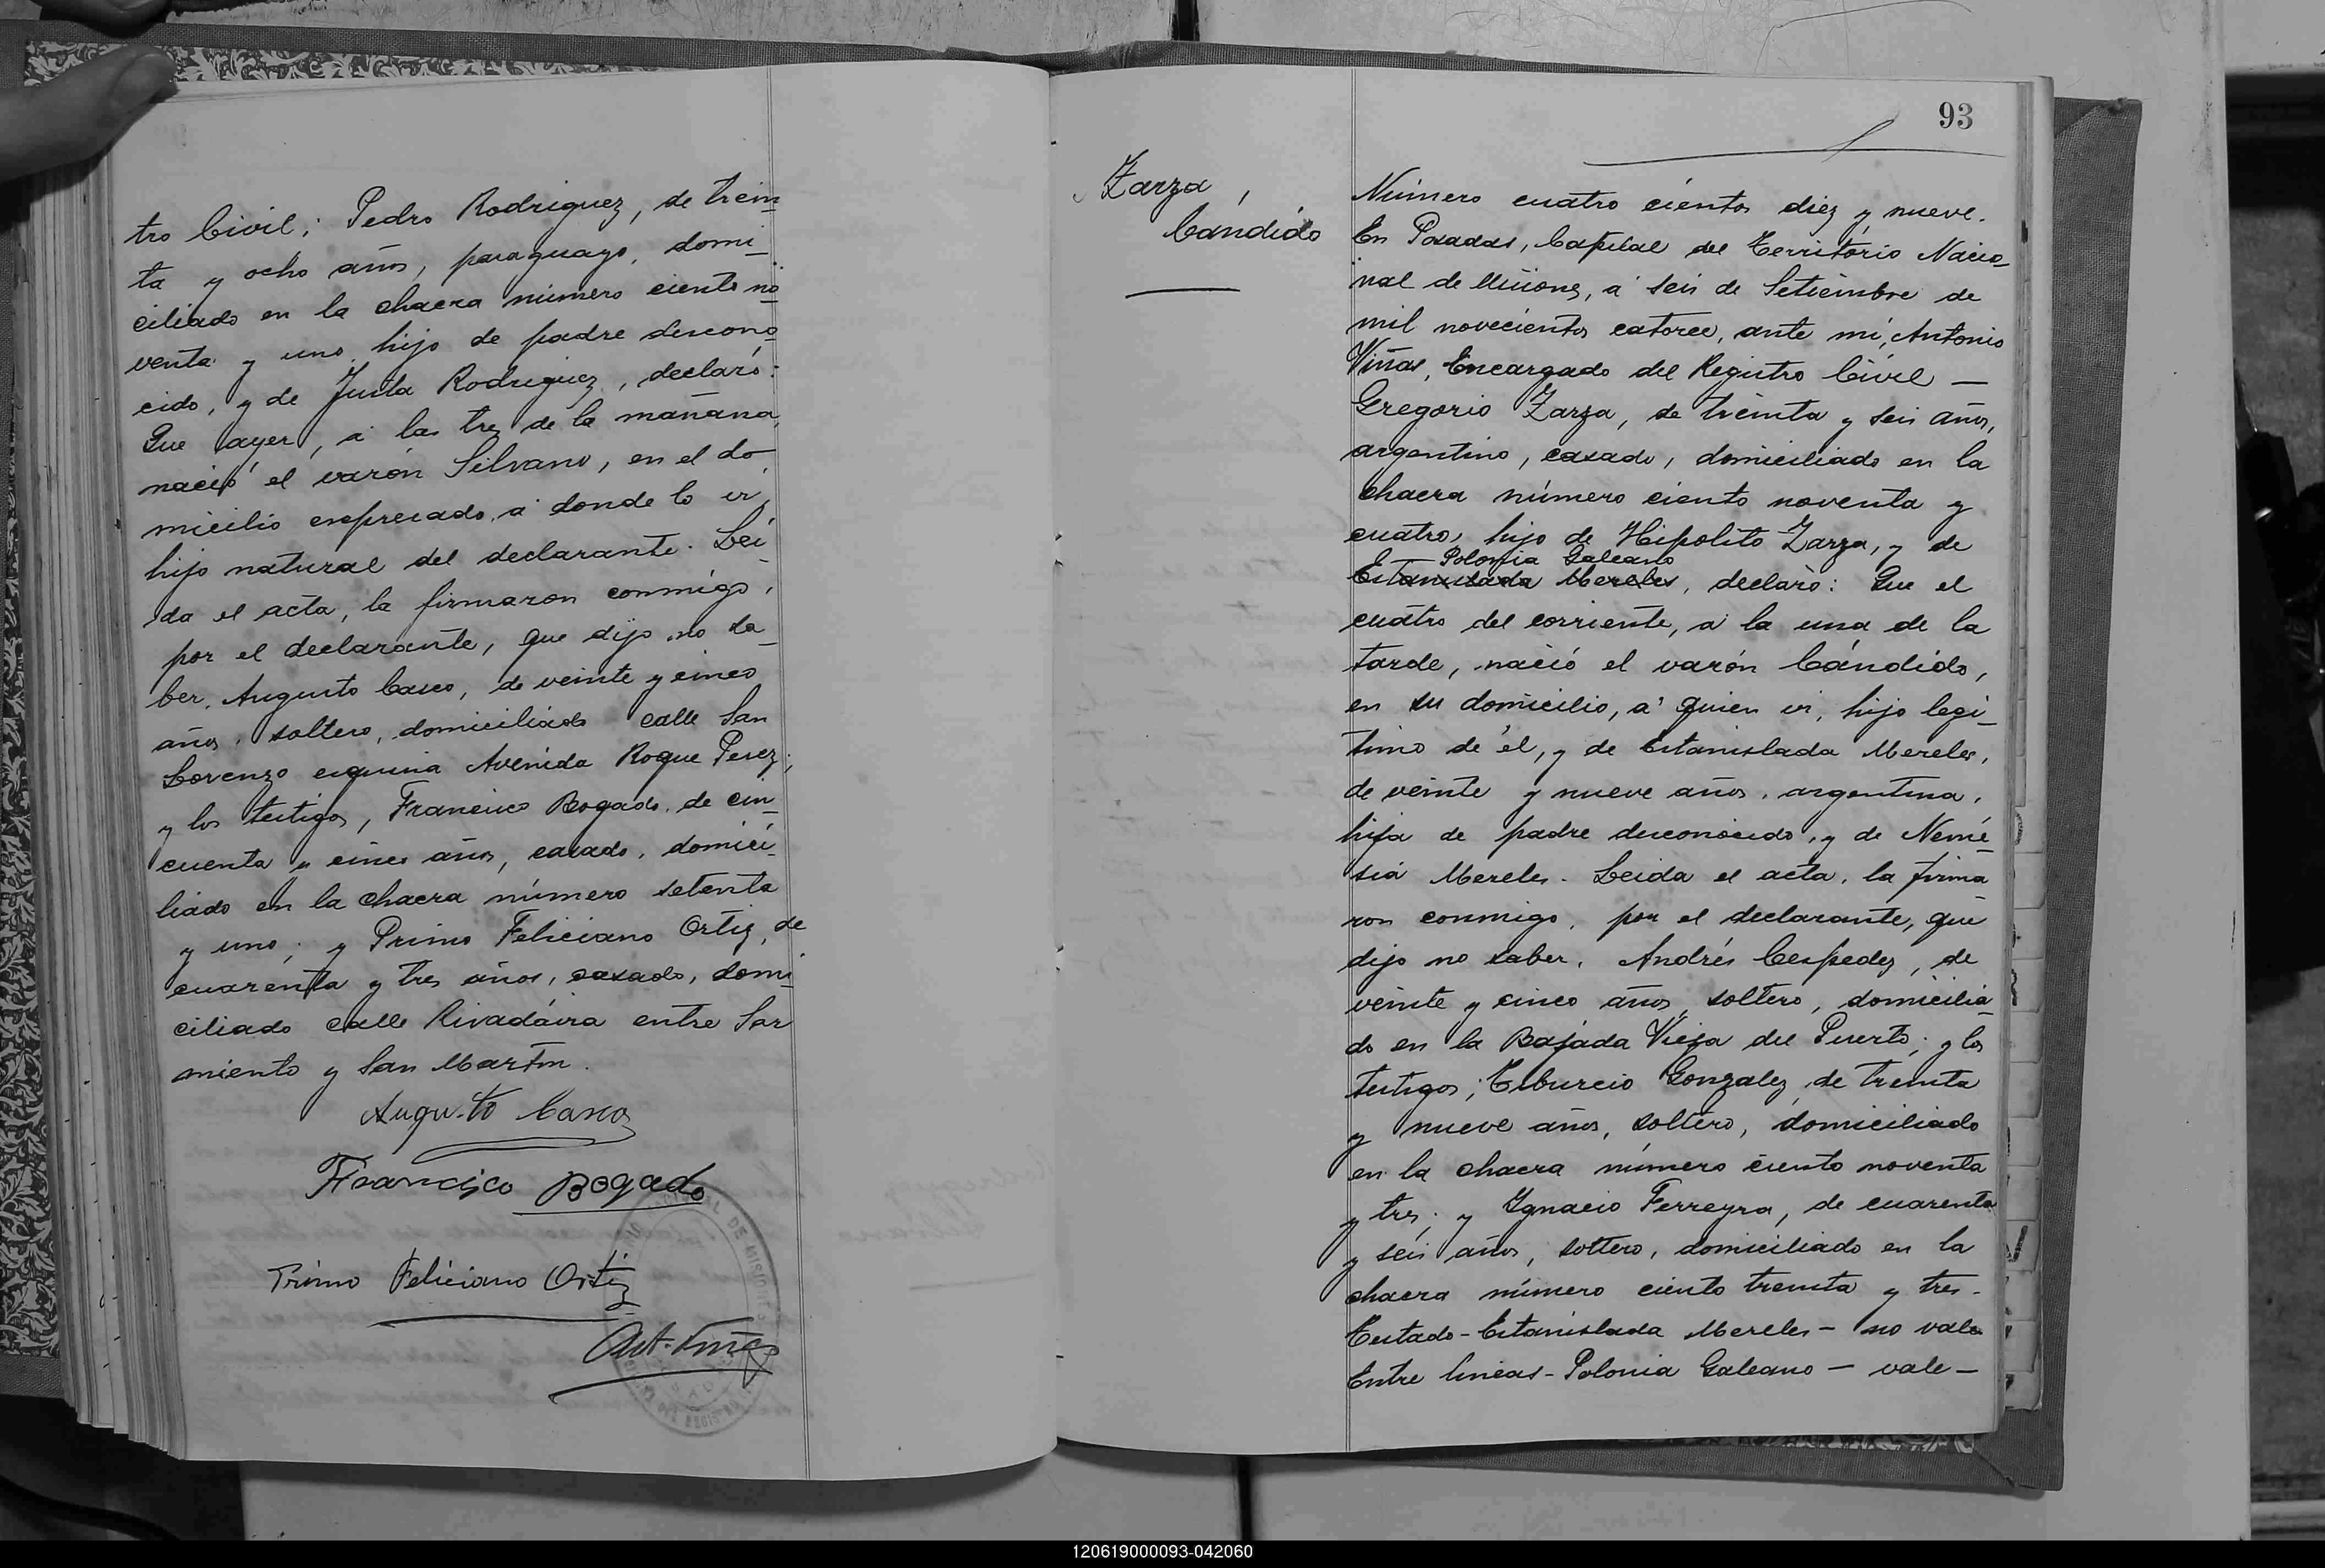 tro Civil; Pedro Rodriguez, de trein
ta y ocho años, paraguayo, domi-
ciliado en la chacra número ciento no
venta y uno, hijo de padre descono
cido, y de Justa Rodriguez, declaró:
Que ayer, á las tres de la mañana,
nació el varón Silvano, en el do
micilio expresado, á donde lo ví,
hijo natural del declarante. Lei
da el acta, la firmaron conmigo,
por el declarante, que dijo no sa-
ber, Augusto Casco, de veinte y cinco
años, soltero, domiciliado calle San
Lorenzo esquina Avenida Roque Perez;
y los testigos, Francisco Bogado, de cin
cuenta y cinco años, casado, domici-
liado en la chacra número setenta
y uno; y Primo Feliciano Ortiz, de
cuarenta y tres años, casado, domi-
ciliado calle Rivadáira entre Sar
miento y San Martin.
Augusto Casco
Francisco Bogado
Primo Feliciano Ortiz
Ant. Viñas
93
Zarza,
Cándido
Número cuatro cientos diez y nueve.
En Posadas, Capital del Territorio Nacio-
nal de Misiones, á seis de Setiembre de
mil novecientos catorce, ante mí, Antonio
Viñas, Encargado del Registro Civil —
Gregorio Zarza, de treinta y seis años,
argentino, casado, domiciliado en la
chacra número ciento noventa y
cuatro, hijo de Hipolito Zarza, y de
Polonia Galeano
Estanislada Mereles, declaró: Que el
cuatro del corriente, á la una de la
tarde, nació el varón Cándido,
en su domicilio, á quien ví, hijo legi-
timo de él, y de Estanislada Mereles,
de veinte y nueve años, argentina,
hija de padre desconocido, y de Neme-
sia Mereles. Leida el acta, la firma
ron conmigo, por el declarante, que
dijo no saber, Andrés Cespedes, de
veinte y cinco años, soltero, domicilia-
do en la Bajada Vieja del Puerto; y los
testigos; Tiburcio Gonzalez, de treinta
y nueve años, soltero, domiciliado
en la chacra número ciento noventa
y tres; y Ygnacio Ferreyra, de cuarenta
y seis años, soltero, domiciliado en la
chacra número ciento treinta y tres-
Testado-Estanislada Mereles- no vale
Entre lineas-Polonia Galeano — vale —
120619000093-042060